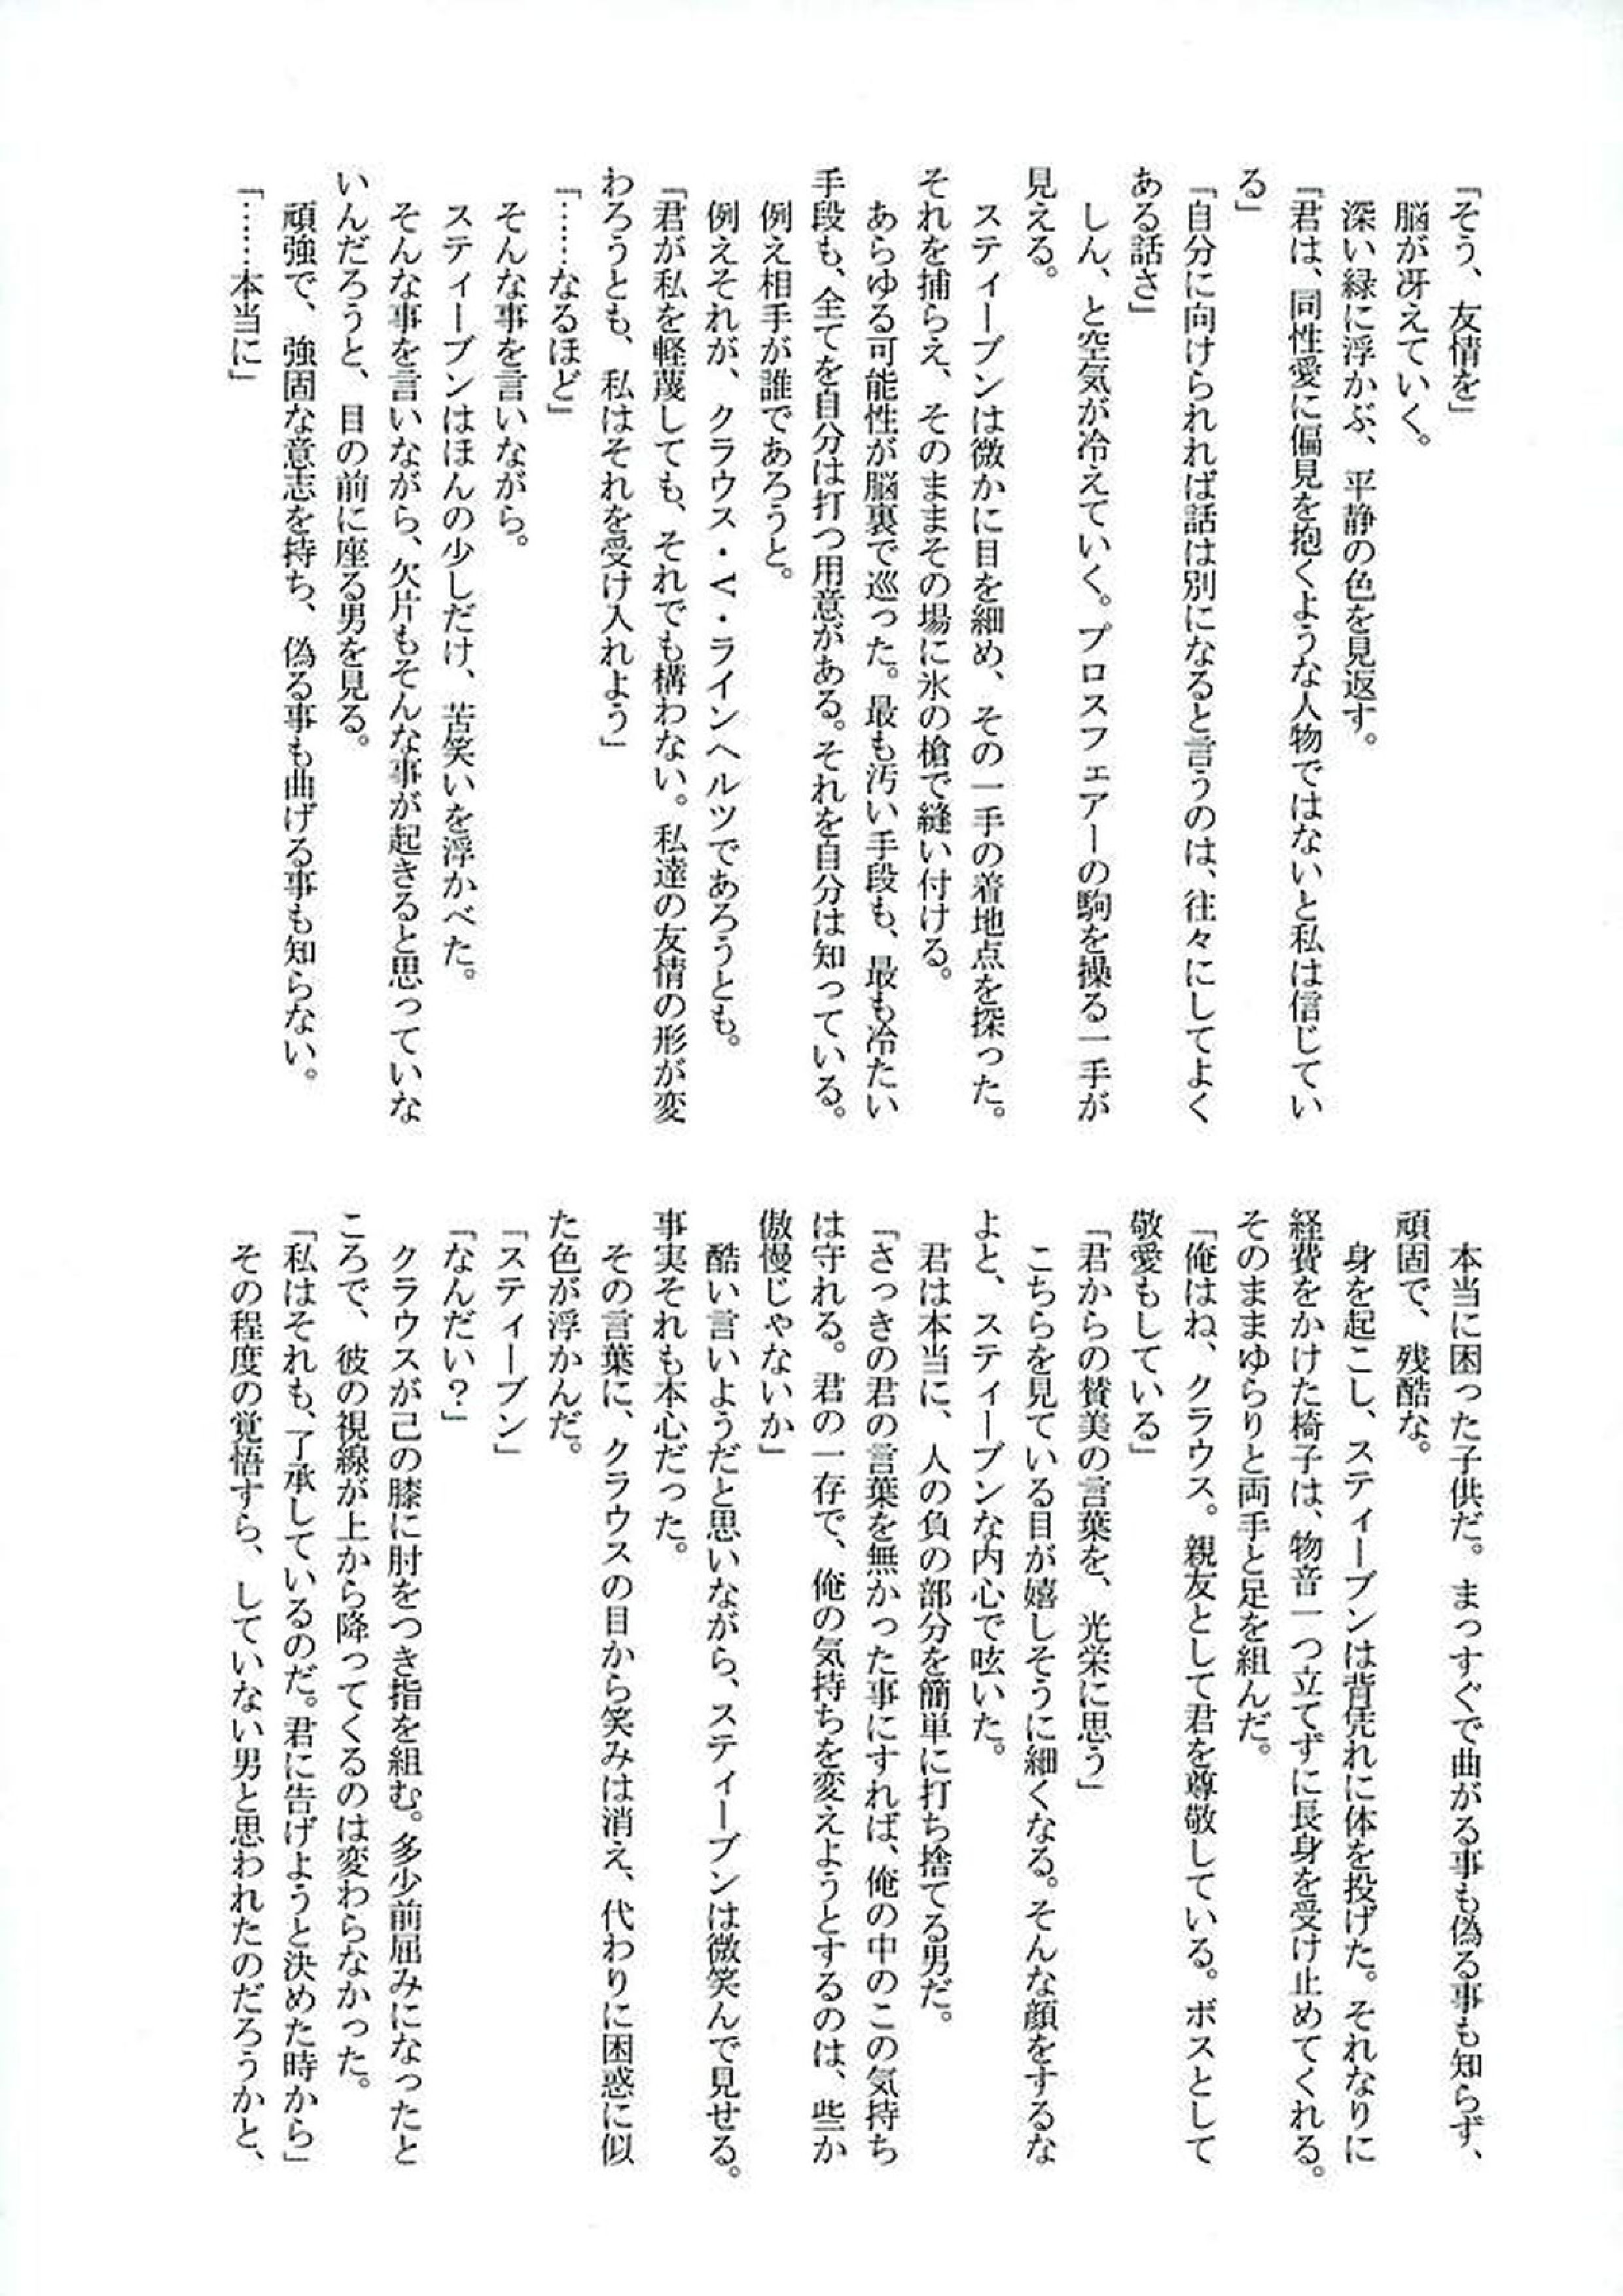 「そう、友情を」
脳が冴えていく。
深い緑に浮かぶ、平静の色を見返す。
「君は、同性愛に偏見を抱くような人物ではないと私は信じてい
る」
「自分に向けられれば話は別になると言うのは、往々にしてよく
ある話さ」
しん、と空気が冷えていく。プロスフェアーの駒を操る一手が
見える。
スティーブンは微かに目を細め、その一手の着地点を探った。
それを捕らえ、そのままその場に氷の槍で縫い付ける。
あらゆる可能性が脳裏で巡った。最も汚い手段も、最も冷たい
手段も、全てを自分は打つ用意がある。それを自分は知っている。
例え相手が誰であろうと。
例えそれが、クラウス・V・ラインヘルツであろうとも。
「君が私を軽蔑しても、それでも構わない。私達の友情の形が変
わろうとも、私はそれを受け入れよう」
「……なるほど」
そんな事を言いながら。
スティーブンはほんの少しだけ、苦笑いを浮かべた。
そんな事を言いながら、欠片もそんな事が起きると思っていな
いんだろうと、目の前に座る男を見る。
頑強で、強固な意志を持ち、偽る事も曲げる事も知らない。
「……本当に」
本当に困った子供だ。まっすぐで曲がる事も偽る事も知らず、
頑固で、残酷な。
身を起こし、スティーブンは背凭れに体を投げた。それなりに
経費をかけた椅子は、物音一つ立てずに長身を受け止めてくれる。
そのままゆらりと両手と足を組んだ。
「俺はね、クラウス。親友として君を尊敬している。ボスとして
敬愛もしている」
「君からの賛美の言葉を、光栄に思う」
こちらを見ている目が嬉しそうに細くなる。そんな顔をするな
よと、スティーブンな内心で呟いた。
君は本当に、人の負の部分を簡単に打ち捨てる男だ。
「さっきの君の言葉を無かった事にすれば、俺の中のこの気持ち
は守れる。君の一存で、俺の気持ちを変えようとするのは、些か
傲慢じゃないか」
酷い言いようだと思いながら、スティーブンは微笑んで見せる。
事実それも本心だった。
その言葉に、クラウスの目から笑みは消え、代わりに困惑に似
た色が浮かんだ。
「スティーブン」
「なんだい？」
クラウスが己の膝に肘をつき指を組む。多少前屈みになったと
ころで、彼の視線が上から降ってくるのは変わらなかった。
「私はそれも、了承しているのだ。君に告げようと決めた時から」
その程度の覚悟すら、していない男と思われたのだろうかと、